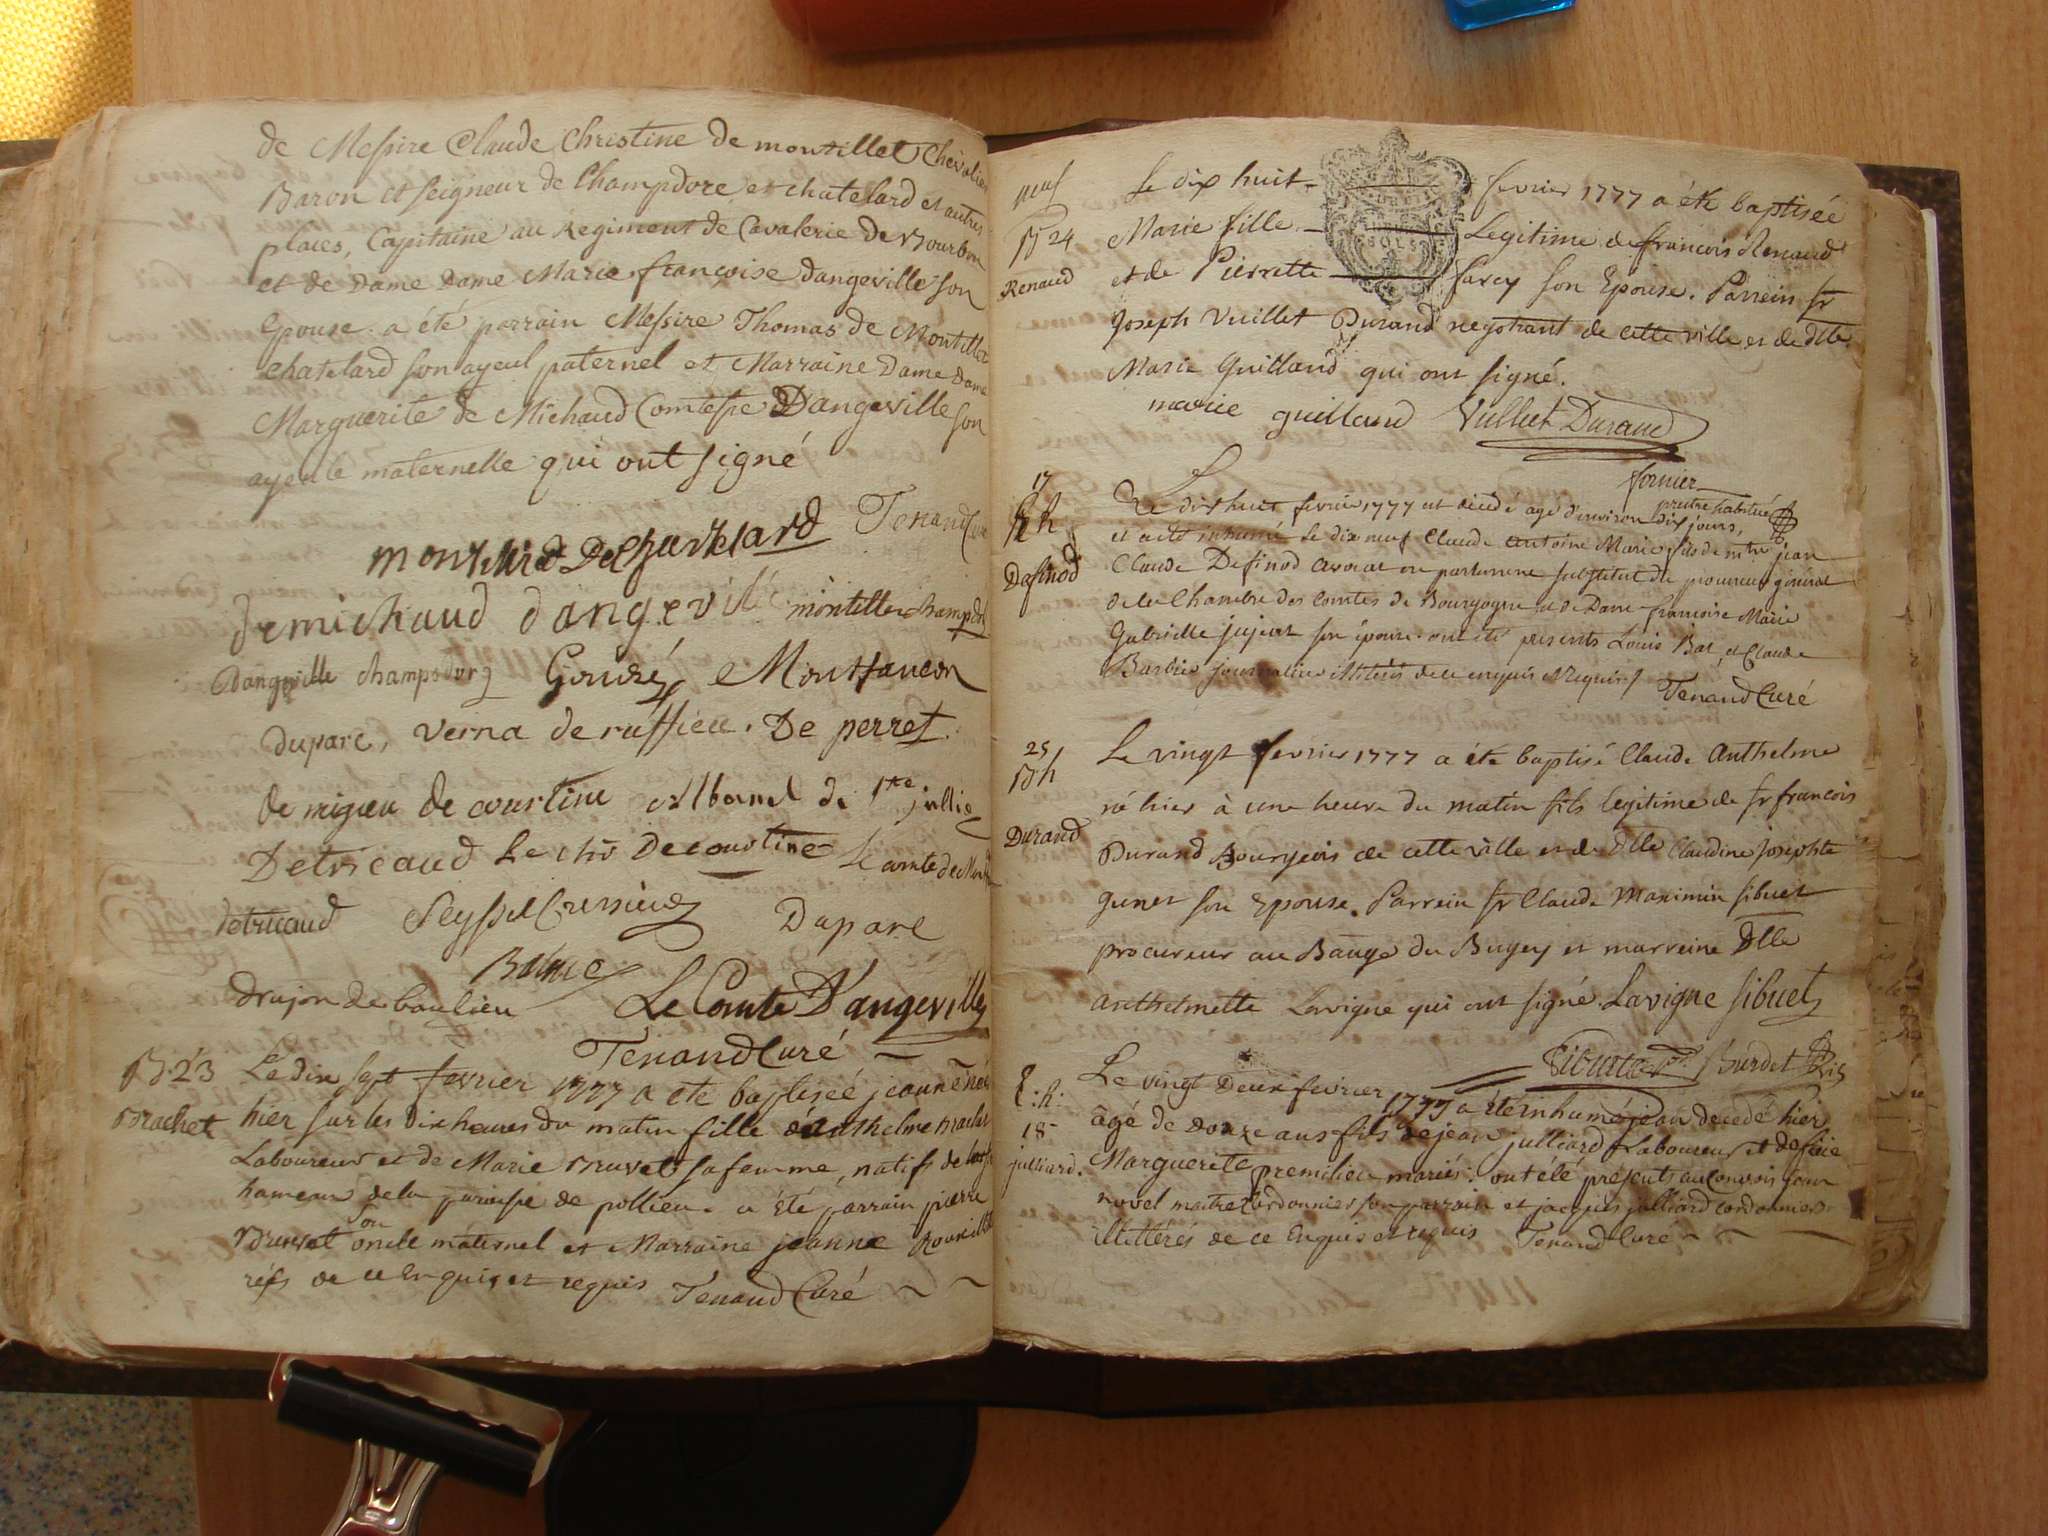 de Messire Claude Christine de montillet Chevalier
Baron et seigneur de Champdore et chatelard et autres
places, Capitaine au Regiment de Cavalerie de Bourbon
et de Dame Dame Marie françoise dangeville son
Epouse. a été parrain Messire Thomas de Montillet
chatelard son ayeul paternel et Marraine Dame Dame
Marguerite de Michaud Comtesse Dangeville son
ayeule maternelle qui ont signé
Tenand Curé
montillet De Chatelard
de michaud dangeville montillet champdor
Dangeville champdor Gouzé Montfaucon
duparc, verna de ruffieu. De perret
de migieu de courtine Albanel de
Detricaud Le chr Decourtine Le comte de
detricaud Seyssel Cressieu Duparc
drujon de baulieu Le Comte D'angeville
Tenand Curé
B 23 Le dix sept fevrier 1777 a ete baptisée jeanne née
Brachet hier sur les dix heures du matin fille d'anthelme Brachet
Laboureur et de Marie Bruvet sa femme, natifs de
hameau de la paroisse de pollieu. a été parrain pierre
Bruvet son oncle maternel et Marraine jeanne
rés de ce Enquis et requis Tenand Curé
neuf
B 24
Renaud
Le dix huit fevrier 1777 a été baptisée
SOLS
Marie fille Legitime de francois Renaud
et de Pierrette farcy son Epouse. Parrein sr
Joseph Vuillet Durand negotiant de cette ville et de dlle
Marie Guilland qui ont signé.
marie guilland Vulliet Durand
fornier
pretre habitué
17
Dh
Definod
Le dix huit fevrier 1777 est decedé agé d'environ dix jours,
et a été inhumé le dix neuf Claude antoine Marie fils de mtre jean
Claude Definod avocat en parlement substitut du procureur général
de la Chambre des Comtes de Bourgogne et de Dame francoise Marie
Gabrielle jujeat son épouse. ont été presents Louis Bal, et Claude
Barbier journaliers illiterés de ce enquis et requis
Tenand Curé
25
Bh
Durand
Le vingt fevrier 1777 a été baptisé Claude Anthelme
né hier à une heure du matin fils legitime de sr francois
Durand Bourgeois de cette ville et de dlle Claudine josephte
Genet son Epouse. Parrein sr Claude Maximin sibuet
procureur au Baage du Bugey et marreine dlle
Anthelmette Lavigne qui ont signé. Lavigne sibuet
Burdet
E:h:
18
julliard.
Le vingt Deux fevrier 1777 a été inhumé jean decedé hier
âgé de Douze ans fils de jean julliard Laboureur et de feüe
Marguerite premilieu mariés: ont été présents au Convois jean
novel maitre Cordonnier son parrain et jacques julliard cordonnier
illittérés de ce Enquis et requis Tenand Curé